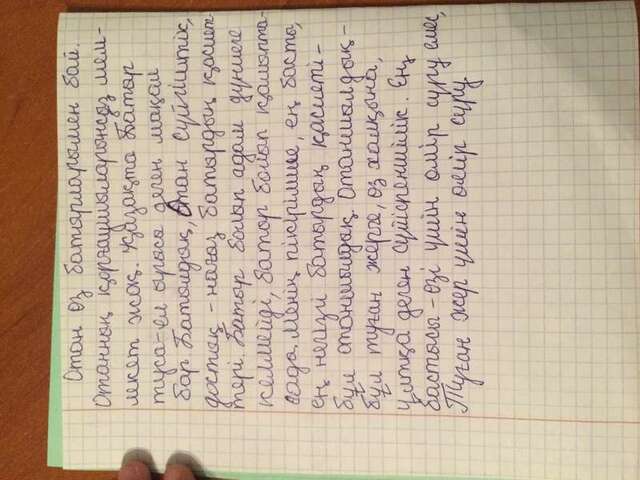 Отан өз батырларымен бай.
Отанның қорғаушыларынсыз мем-
лекет жоқ. Қазақта Батыр
туса-ел ырысы деген мақал
бар. Батылдық, Отан сүйгіштік,
достық - нағыз батырдың қасиет-
тері. Батыр болып адам дүниеге
келмейді, батыр болып қалыпта-
сады. Менің пікірімше, ең басты,
ең негізгі батырдың қасиеті -
бұл отаншылдық. Отаншылдық -
бұл туған жерге, өз халқына,
ұлтқа деген сүйіспеншілік. Ең
бастысы - өзі үшін өмір сүру емес,
Туған жер үшін өмір сүру.